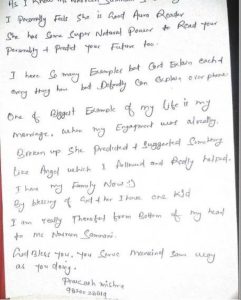 As I know Ms Nasreen Samnani
I Personally Feel She is Good Aura Reader
She has Some Super Natural Power to Read your
Personality & Predict your Future too.
I have so many Examples but Can't Explain each &
every thing here but Definitely Can explain over phone
One of Biggest Example of my life is my
marriage, when my Engagement was already
Broken up She Predicted & Suggested Something
like Angel which I followed and Really helped.
I have my Family Now :)
By blessing of God & her I have one Kid
I am really Thankful from Bottom of my heart
to Ms Nasreen Samnani.
God Bless you, you Serve Mankind Same way
as you doing.
Prakash Mishra